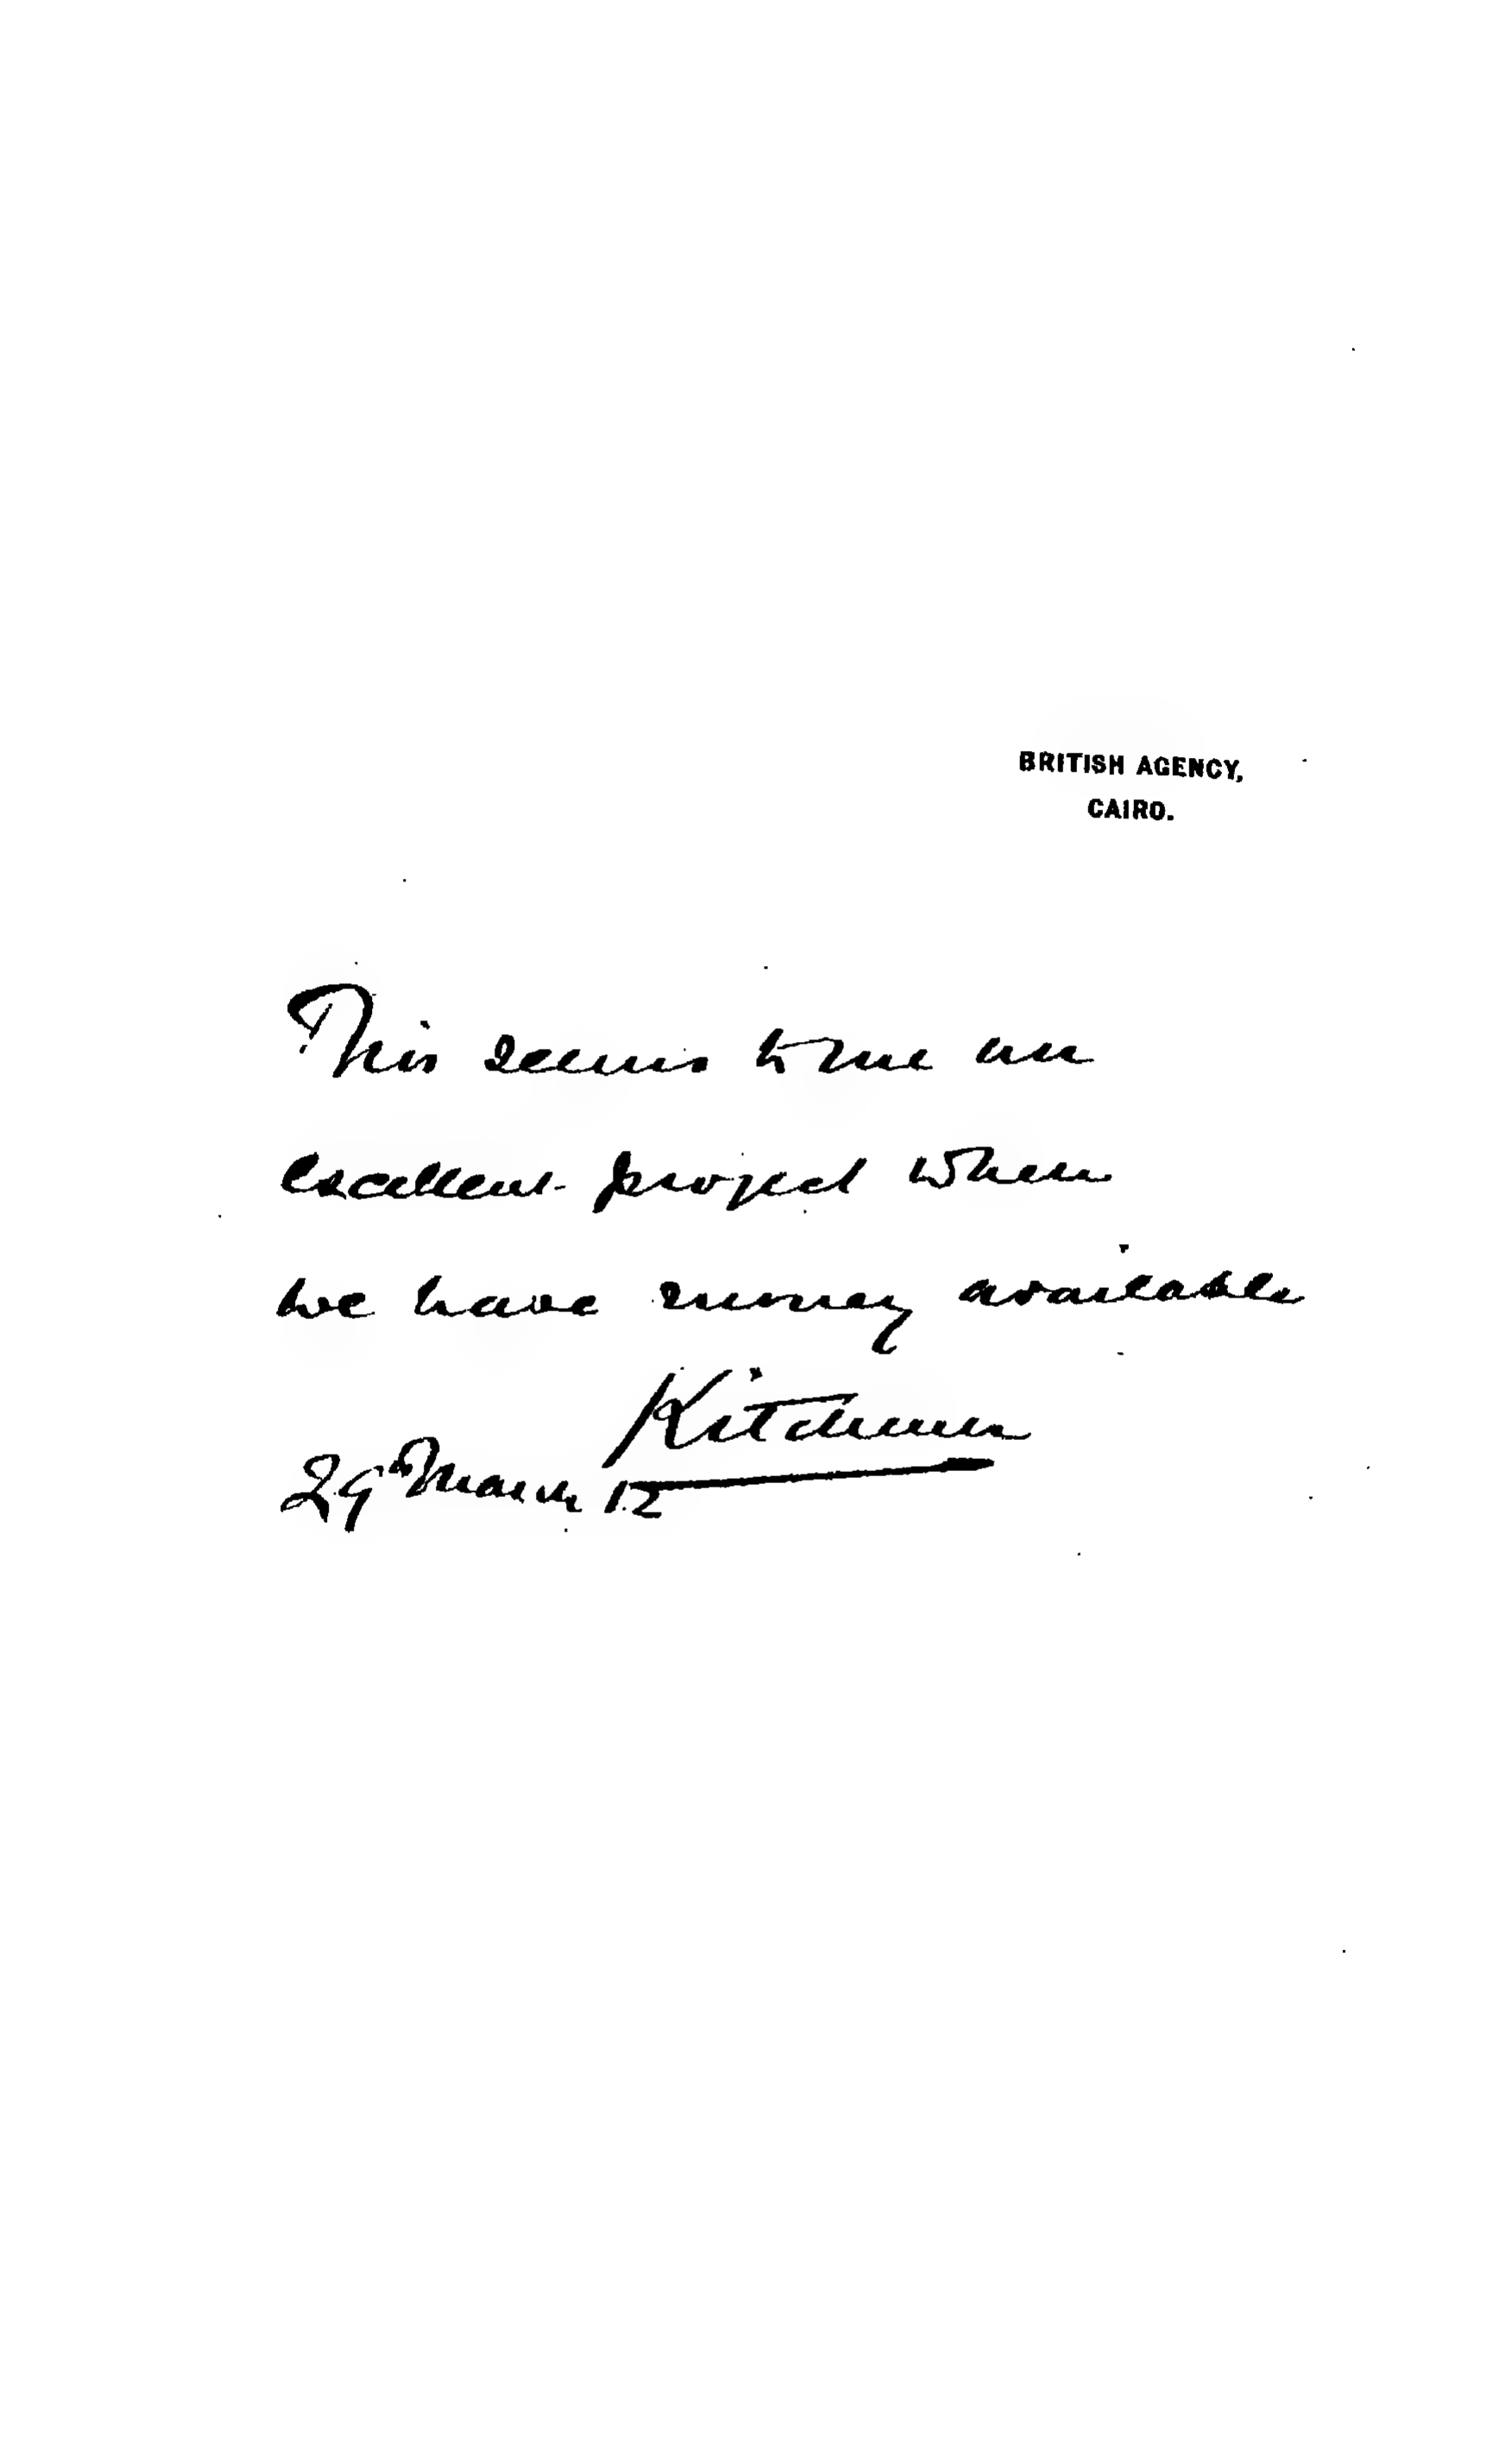 BRITISH AGENCY,
CAIRO.
This seems to me an
excellent project when
we have money available
Kitchener
29 March 12